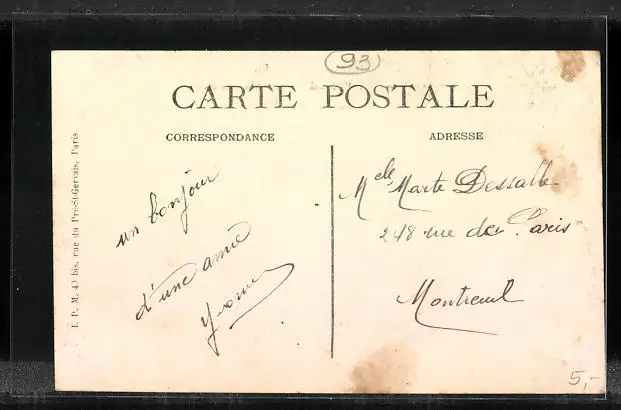 93
CARTE POSTALE
CORRESPONDANCE
ADRESSE
I. P. M. 43 bis, rue du Pré-St-Gervais, Paris
un bonjour
d'une amie
Yvonne
Melle Marte Dessalle
248 rue de Paris
Montreuil
5,-